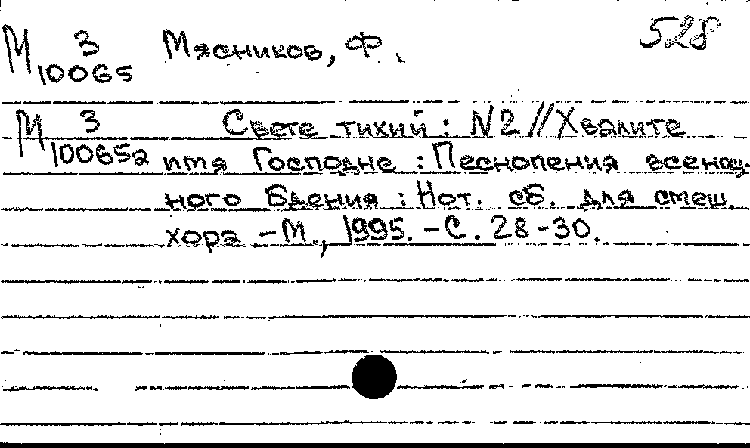 М 3 10065 Мясников, Ф. 528
М 3 10065а Свете тихий : N2 // Хвалите
имя Господне : Песнопения всенощ-
ного бдения : Нот. сб. для смеш.
хора. – М., 1995. – С. 28-30.